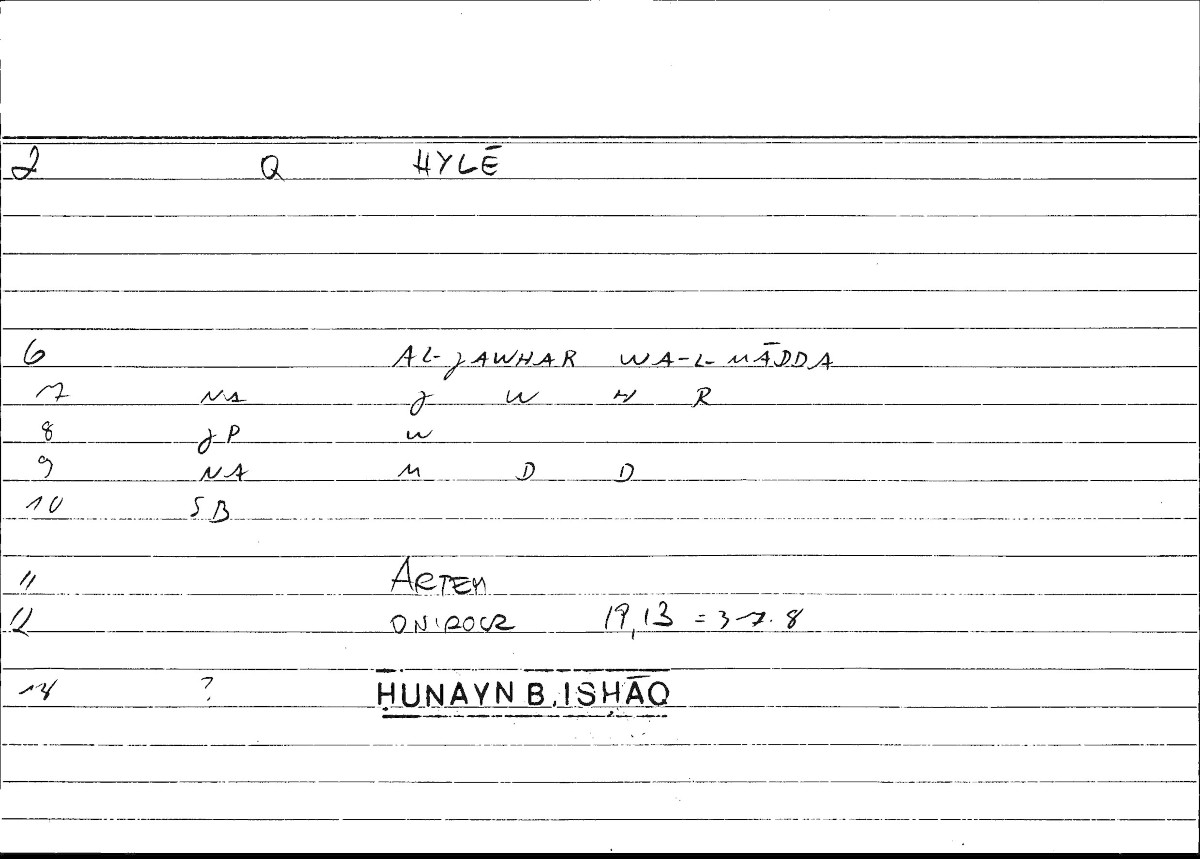 2 Q HYLĒ
6 AL-JAWHAR WA-L-MĀDDA
7 NA J W H R
8 JP W
9 NA M D D
10 SB
11 ARTEM
12 ONIROCR 19,13 = 37.8
14 ? ḤUNAYN B. ISḤĀQ